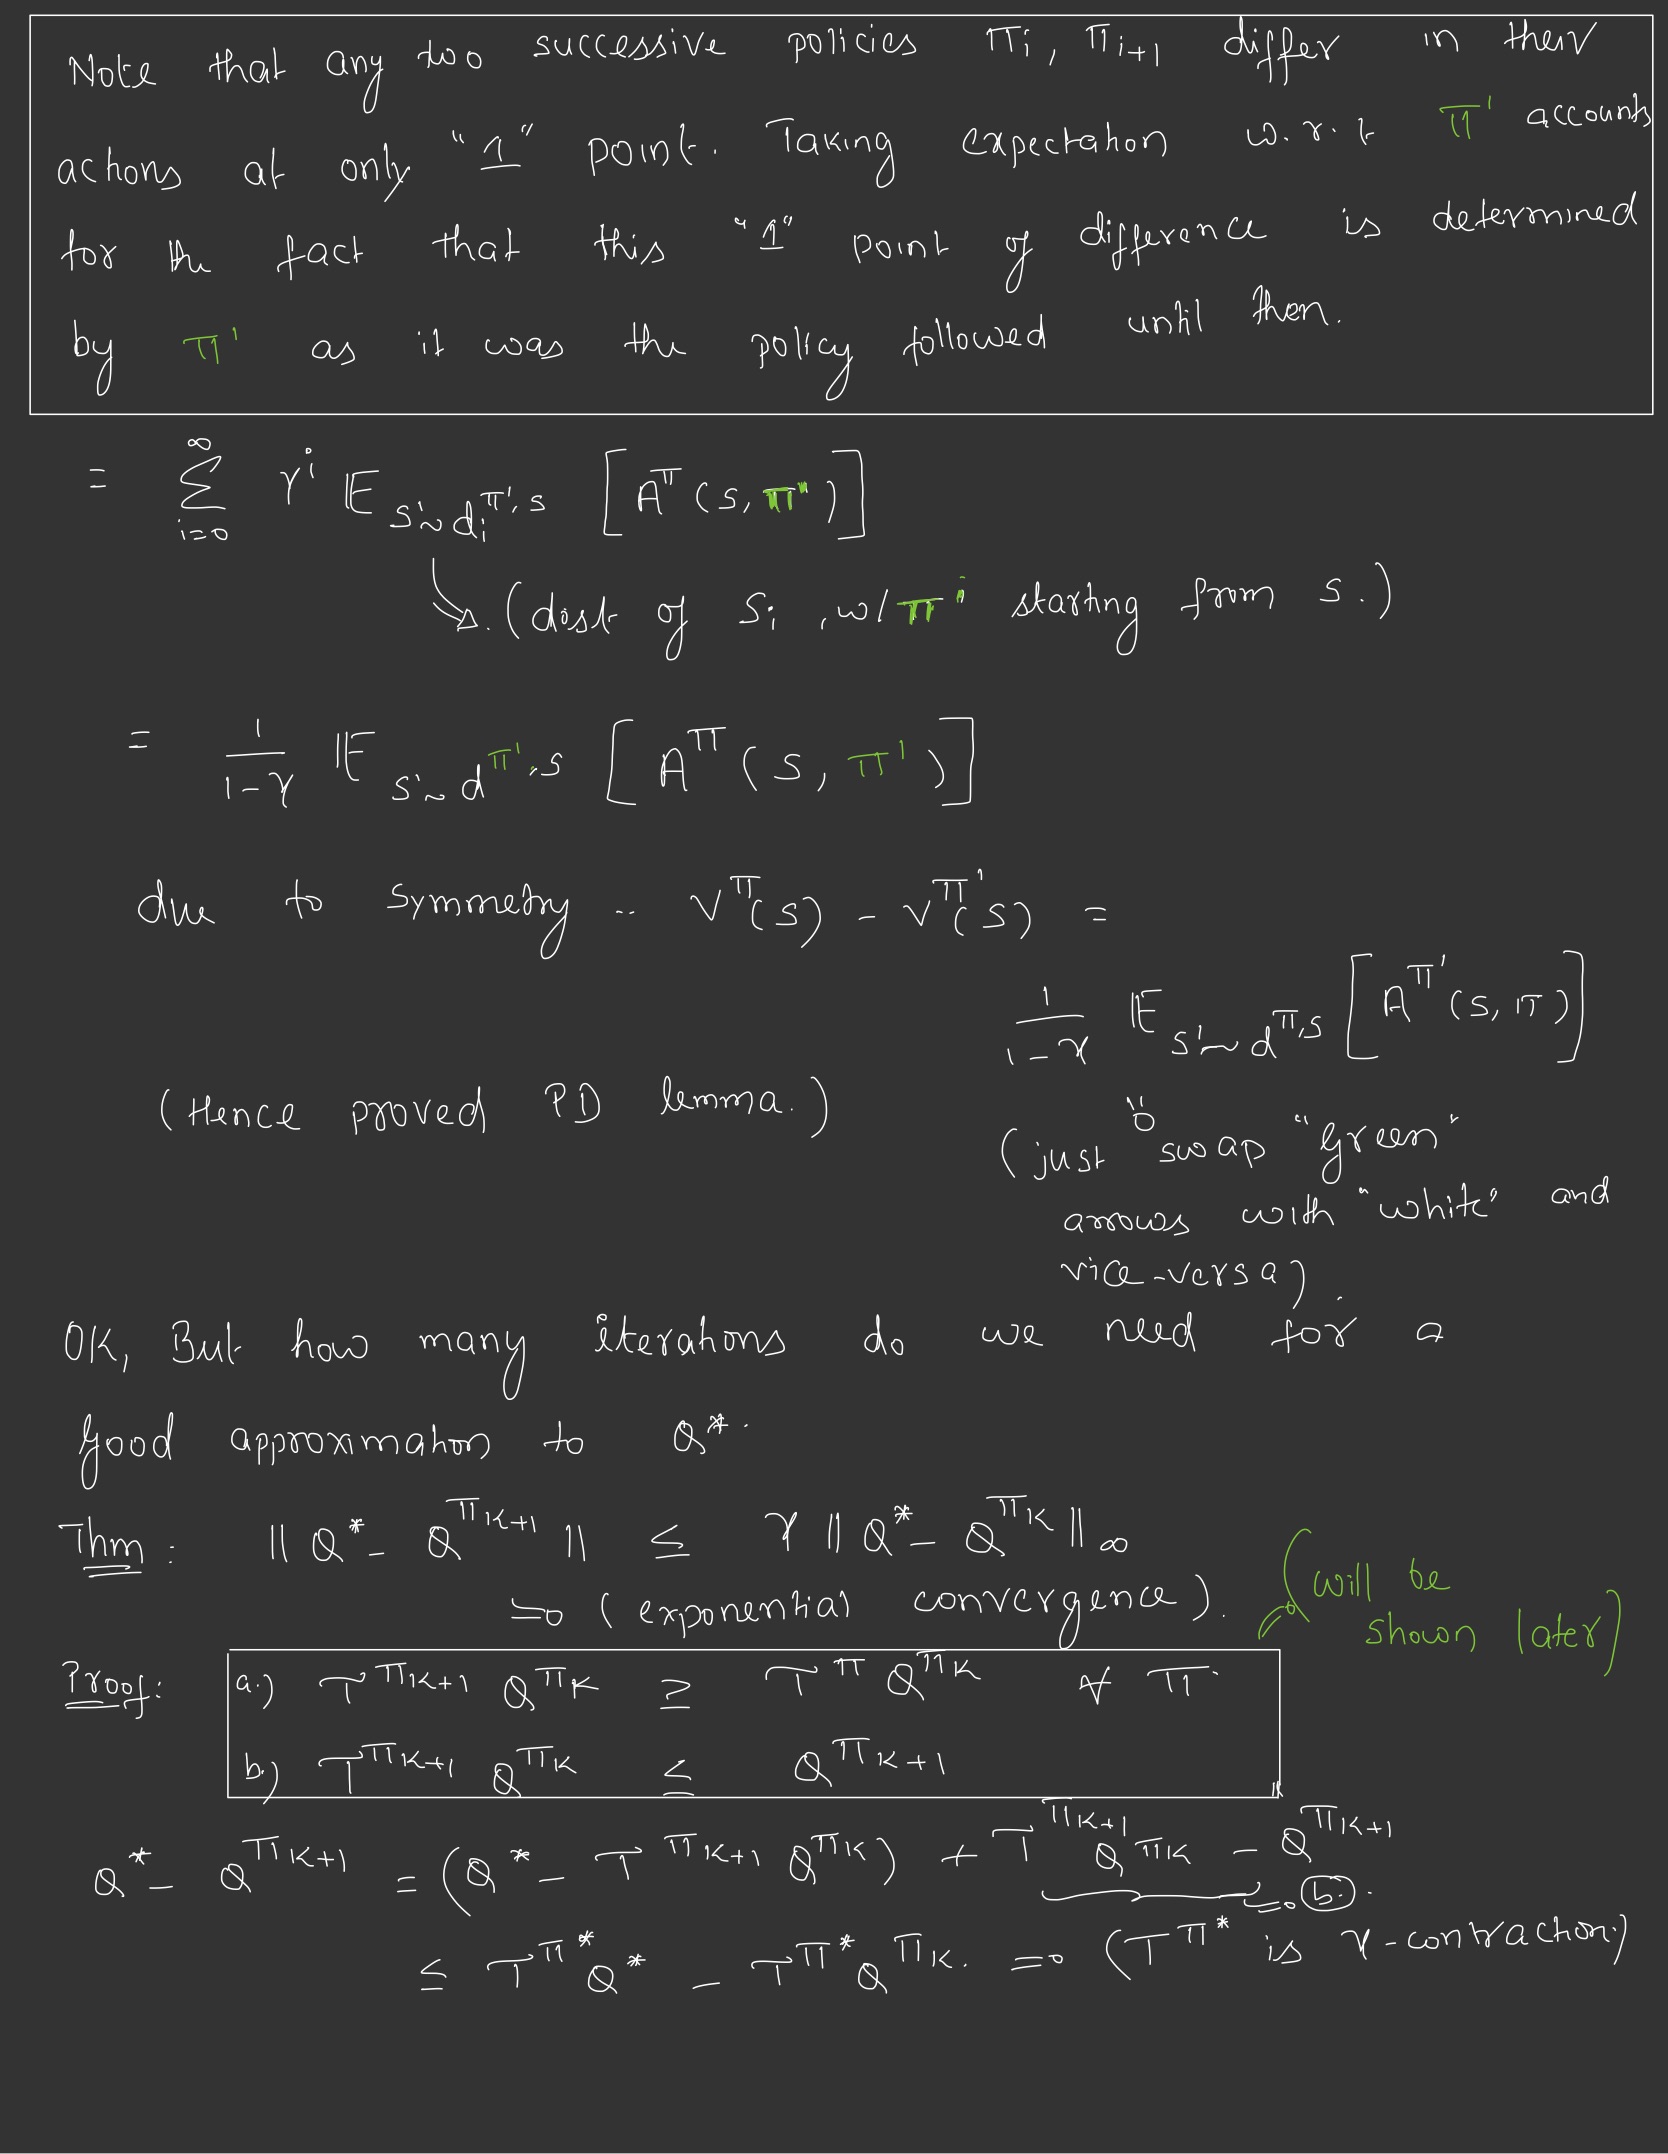 Note that any two successive policies π_i, π_{i+1} differ in their
actions at only "1" point. Taking expectation w.r.t π' accounts
for the fact that this "1" point of difference is determined
by π' as it was the policy followed until then.
= Σ_{i=0}^{∞} γ^i 𝔼_{s'~d_i^{π',s}} [A^π(s, π')]
(dist of S_i, w/ π' starting from s.)
= 1/(1-γ) 𝔼_{s'~d^{π',s}} [A^π(s, π')]
due to symmetry .. V^π(s) - V^{π'}(s) =
1/(1-γ) 𝔼_{s'~d^{π,s}} [A^{π'}(s, π)]
(Hence proved PD lemma.)
(just swap "green"
arrows with "white" and
vice-versa).
OK, But how many iterations do we need for a
good approximation to Q*.
Thm: ||Q* - Q^{π_{K+1}}|| ≤ γ ||Q* - Q^{π_K}||_∞
⇒ (exponential convergence).
(will be
shown later)
Proof: a.) T^{π_{K+1}} Q^{π_K} ≥ T^π Q^{π_K} ∀ π.
b.) T^{π_{K+1}} Q^{π_K} ≤ Q^{π_{K+1}}
Q* - Q^{π_{K+1}} = (Q* - T^{π_{K+1}} Q^{π_K}) + T^{π_{K+1}} Q^{π_K} - Q^{π_{K+1}}
⇒ (b.).
≤ T^{π*} Q* - T^{π*} Q^{π_K}. ⇒ (T^{π*} is γ-contraction.)